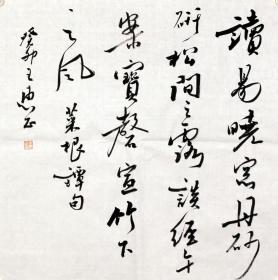 讀易曉窓丹砂
研松間之露談經午
案寶磬宣竹下
之風 菜根譚句
癸卯 王